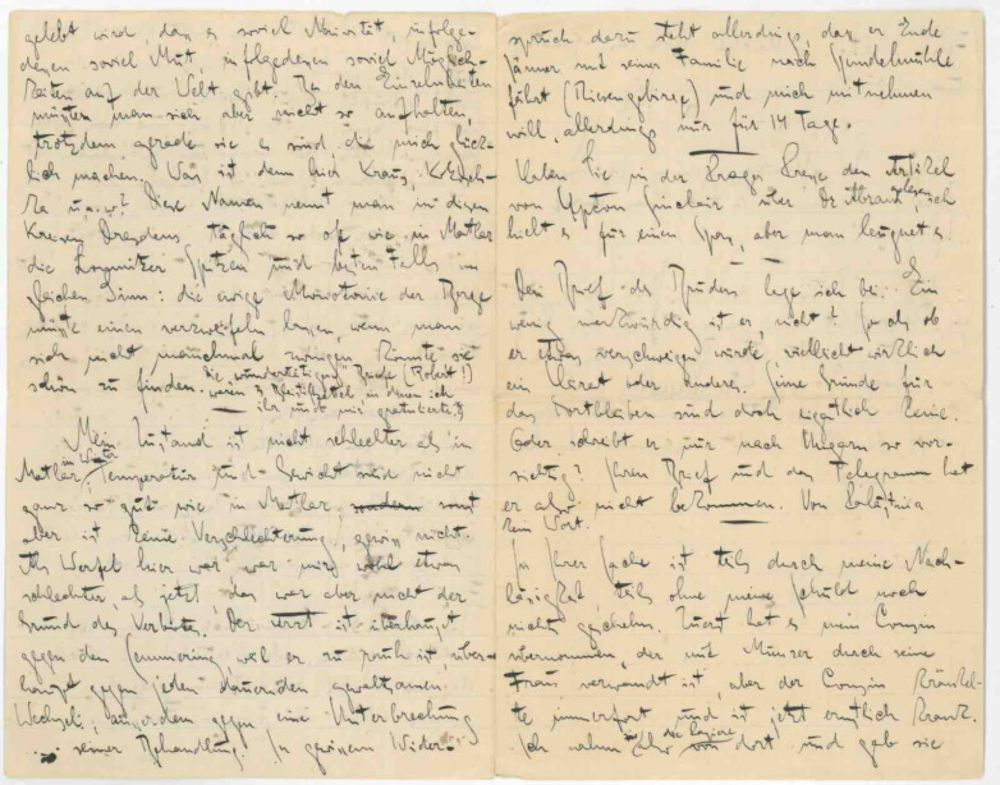 gelebt wird, dass es soviel Naivität, infolge-
dessen soviel Mut, infolgedessen soviel Möglich-
keiten auf der Welt gibt. Bei den Einzelnheiten
müssten man sich aber nicht so aufhalten,
trotzdem gerade sie es sind die mich glück-
lich machen. Was ist denn hier Kraus, Kokosch-
ka u.s.w.? Diese Namen nennt man in diesen
Kreisen Dresdens täglich so oft wie in Matlar
die Lomnitzer Spitzen und besten Falls im
gleichen Sinn: die ewige Monotonie der Berge
müsste einen verzweifeln lassen, wenn man
sich nicht manchmal zwingen könnte sie
schön zu finden. Die "wundertätigen" Briefe (Robert!)
waren 3 Bleistiftzettel, in denen ich
ihr und mir gratulierte.
Mein Zustand ist nicht schlechter als in
Matlar im Winter, Temperatur und Gewicht sind nicht
ganz so gut wie in Matlar, sonst
aber ist keine Verschlechterung, gewiss nicht.
Als Werfel hier war, war mir wohl etwas
schlechter, als jetzt, das war aber nicht der
Grund des Verbotes. Der Arzt ist überhaupt
gegen den Semmering, weil er zu rauh ist, über-
haupt gegen jeden dauernden gewaltsamen
Wechsel, ausserdem gegen eine Unterbrechung
seiner Behandlung. In gewissem Wider-
spruch dazu steht allerdings, dass er Ende
Jänner mit seiner Familie nach Spindelmühle
fährt (Riesengebirge) und mich mitnehmen
will, allerdings nur für 14 Tage.
Haben Sie in der Prager Presse den Artikel
von Upton Sinclair über Dr Abrams gelesen, ich
hielt es für einen Spass, aber man leugnet es.
Den Brief des Bruders lege ich bei. Ein
wenig merkwürdig ist er, nicht? So als ob
er etwas verschweigen würde, vielleicht wirklich
ein Claret oder anderes. Seine Gründe für
das Fortbleiben sind doch eigentlich keine.
Oder schreibt er nur nach Ungarn so vor-
sichtig? Ihren Brief und das Telegramm hat
er aber nicht bekommen. Von Palästina
kein Wort.
In Ihrer Sache ist teils durch meine Nach-
lässigkeit, teils ohne meine Schuld noch
nichts geschehn. Zuerst hat es mein Cousin
übernommen, der mit Münzer durch seine
Frau verwandt ist, aber der Cousin kränkel-
te immerfort und ist jetzt ernstlich krank.
Ich nahm die Papiere dort und gab sie